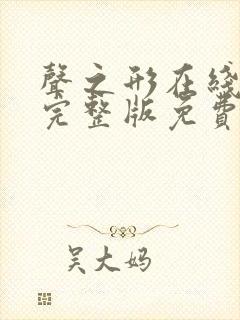 聲之形在綫
完整版免費
吴大妈